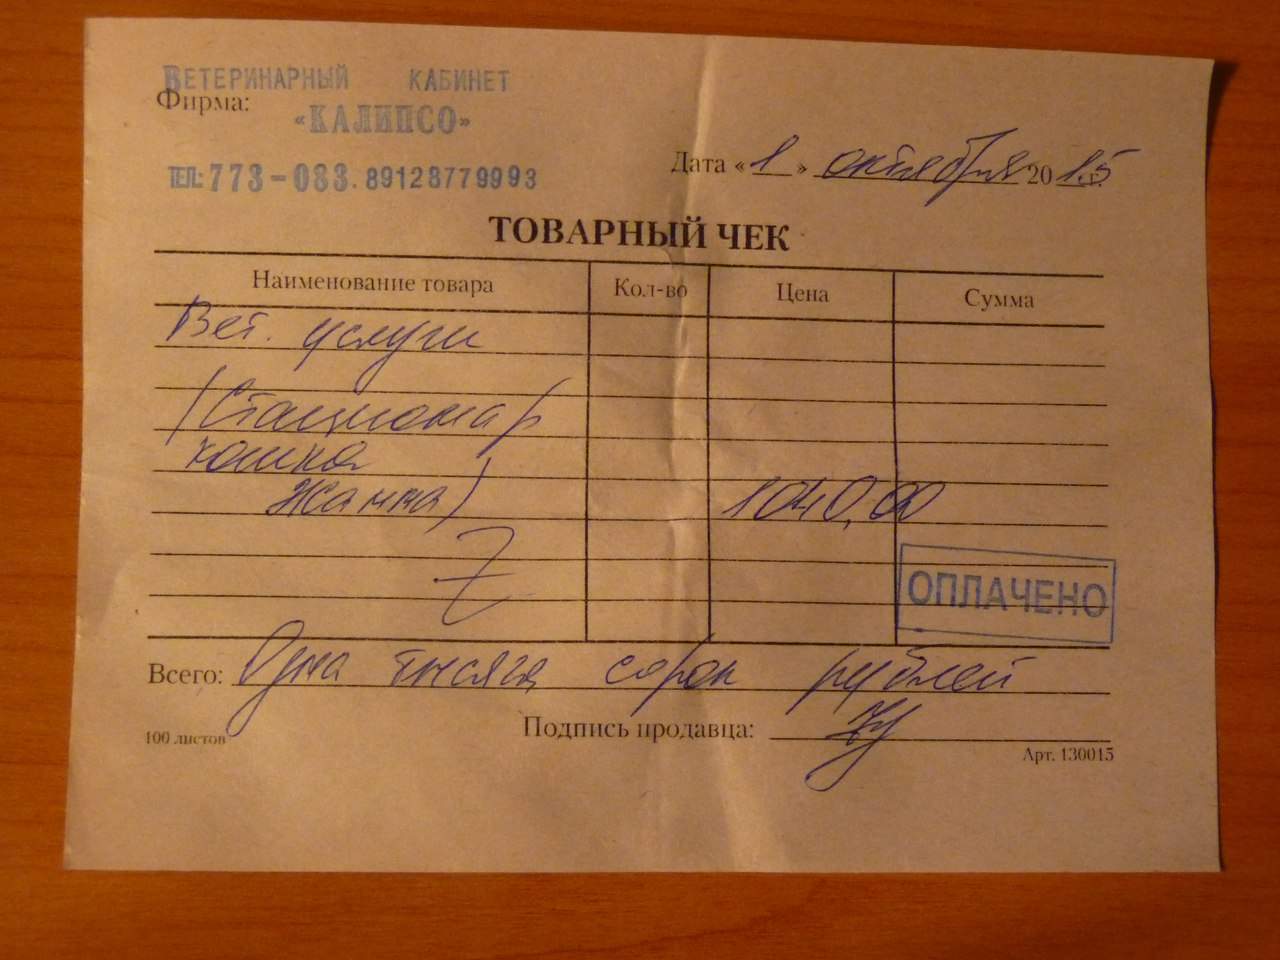 Ветеринарный кабинет
Фирма:
«КАЛИПСО»
ТЕЛ: 773-083. 89128779993
Дата «1» октября 2015
ТОВАРНЫЙ ЧЕК
Наименование товара Кол-во Цена Сумма
Вет. услуги
(Стационар
кошка
Жанна) 1040,00
ОПЛАЧЕНО
Всего: Одна тысяча сорок рублей
Подпись продавца:
100 листов
Арт. 130015